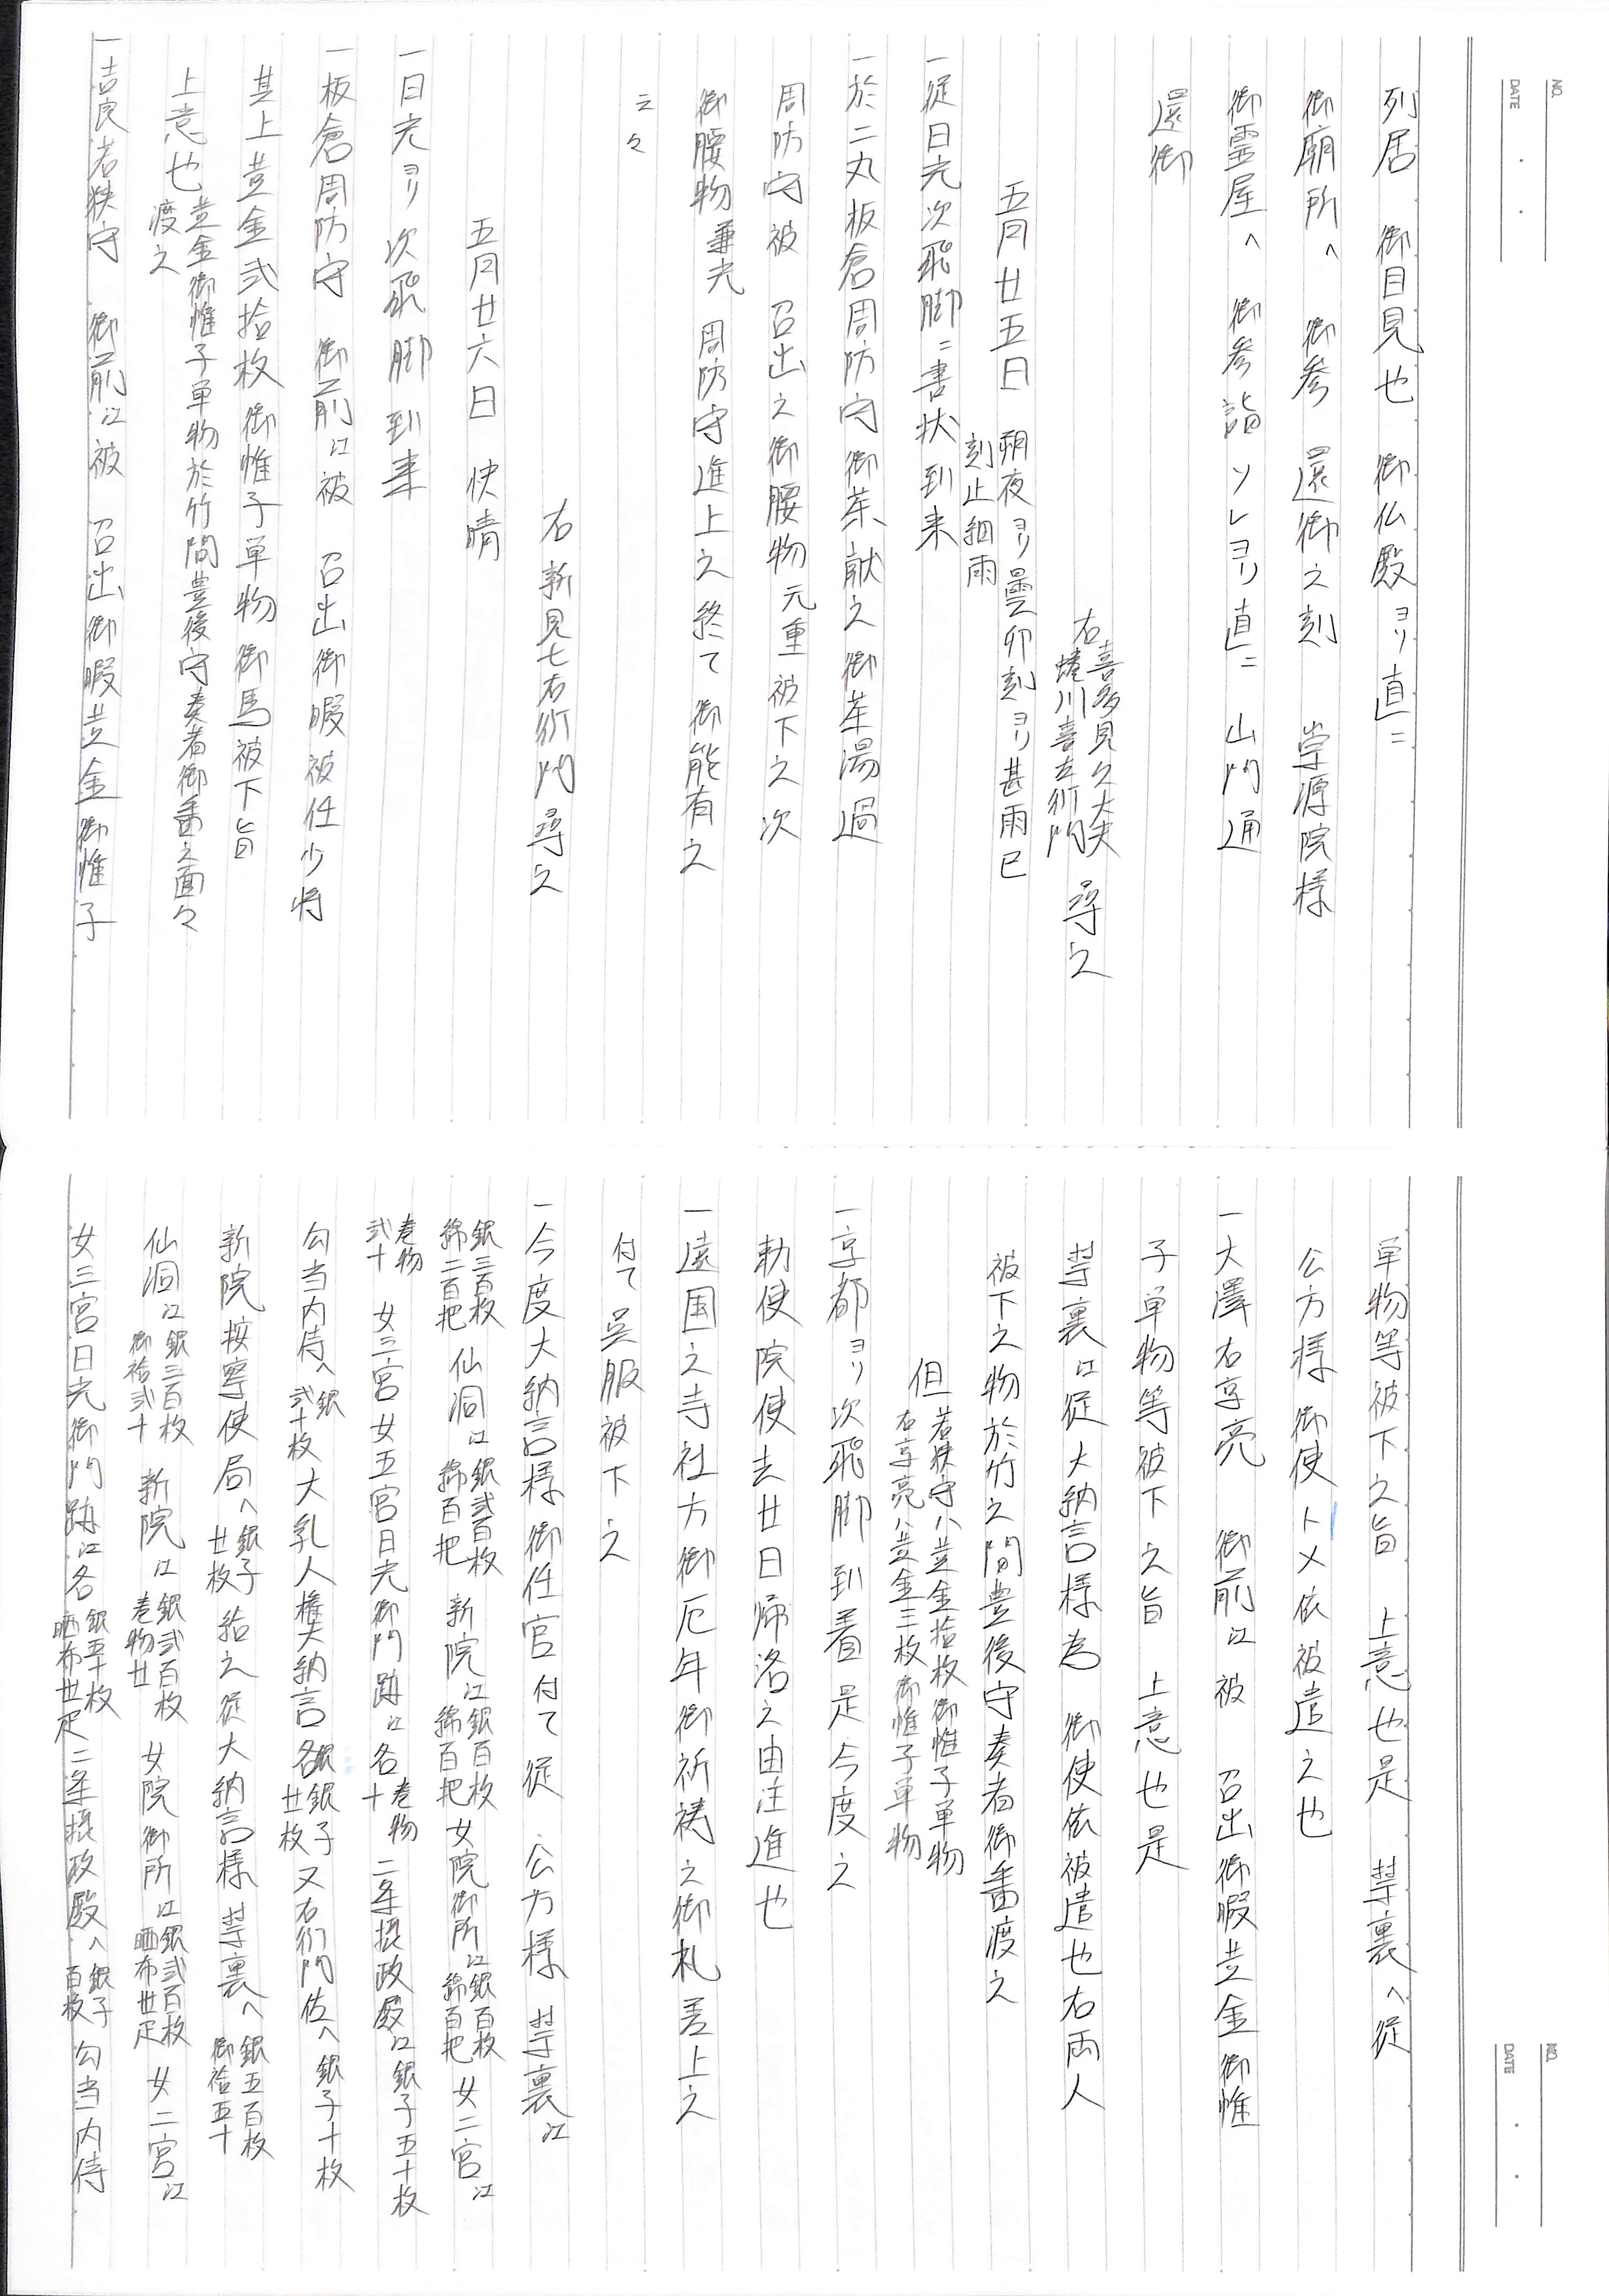 NO.
DATE
列居　御目見也　御仏殿ヨリ直ニ
御廟所ヘ　御参　還御之刻　崇源院様
御霊屋ヘ　御参詣ソレヨリ直ニ　山門通
還御
右喜多見久大夫
蜷川喜左衛門　尋之
五月廿五日　朔夜ヨリ曇卯刻ヨリ甚雨巳
刻止細雨
一従日光次飛脚ニ書状到来
一於二丸板倉周防守御茶献之御茶湯過
周防守被　召出之御腰物元重被下之次
御腰物兼光　周防守進上之終て御能有之
云々
右新見七右衛門尋之
五月廿六日　快晴
一日光ヨリ次飛脚到来
一板倉周防守　御前江被　召出御暇被任少将
其上黄金弐拾枚御帷子単物御馬被下旨
上意也黄金御帷子単物於竹間豊後守奏者御番之面々
渡之
一吉良若狭守　御前江被　召出御暇黄金御帷子
NO.
DATE
単物等被下之旨　上意也是　禁裏ヘ従
公方様御使トメ依被遣之也
一大澤右京亮　御前江被　召出御暇黄金御帷
子単物等被下之旨　上意也是
禁裏江従大納言様為　御使依被遣也右両人
被下之物於竹之間豊後守奏者御番渡之
但若狭守ハ黄金拾枚御帷子単物
右京亮ハ黄金三枚御帷子単物
一京都ヨリ次飛脚到着是今度之
勅使院使去廿日帰洛之由注進也
一遠国之寺社方御厄年御祈祷之御札差上之
付て呉服被下之
一今度大納言様御任官付て従　公方様禁裏江
銀三百枚
綿二百把　仙洞江銀弐百枚
綿百把　新院江銀百枚
綿百把女院御所江銀百枚
綿百把　女二宮江
巻物
弐十　女三宮女五宮日光御門跡江各巻物
十　二条摂政殿江銀子五十枚
勾当内侍ヘ銀
弐十枚大乳人権大納言各銀子
廿枚又右衛門佐ヘ銀子十枚
新院按察使局ヘ銀子
廿枚給之従大納言様禁裏ヘ銀五百枚
御袷五十
仙洞江銀三百枚
御袷弐十　新院江銀弐百枚
巻物廿　女院御所江銀弐百枚
晒布廿疋　女二宮江
女三宮日光御門跡江各銀五十枚
晒布廿疋二条摂政殿ヘ銀子
百枚　勾当内侍